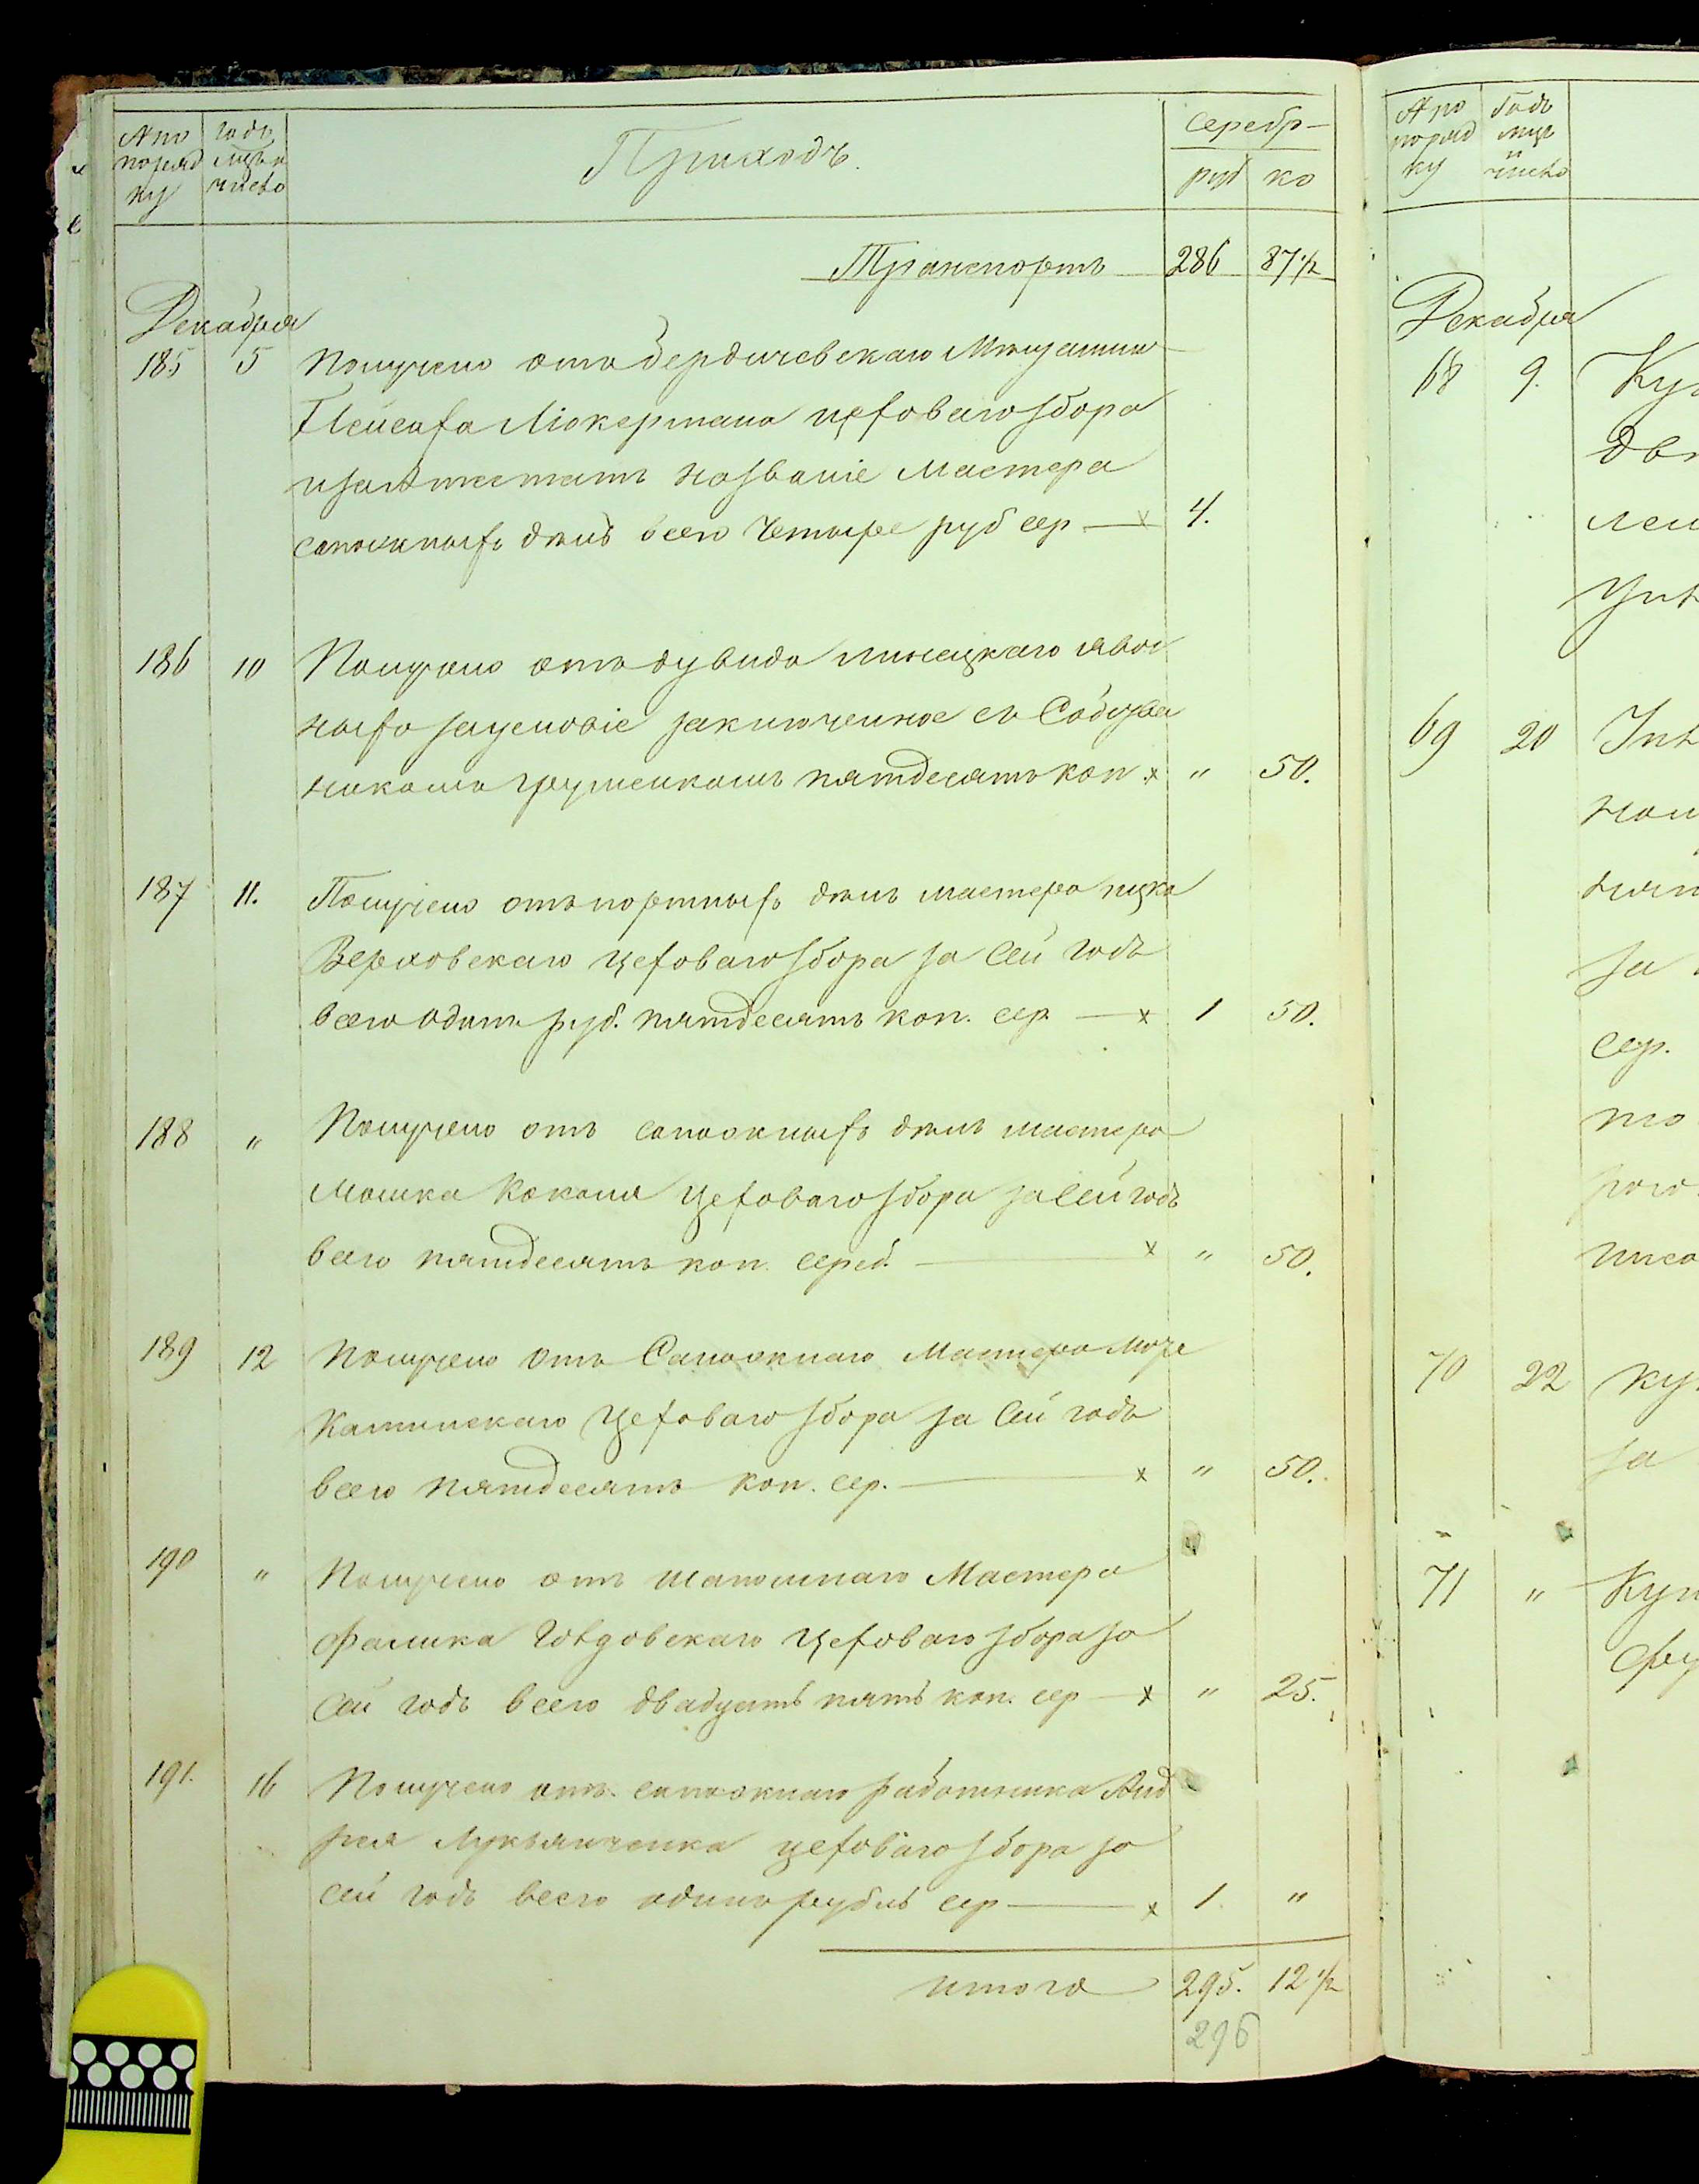 № по поряд ку
годъ мцъ и число
Приходъ.
серебр-
руб ко
Транспортъ 286 87½
Декабря
185 5 Получено отъ бердичевскаго Мѣщанин
Лейсафа цехового збора
названіе мастера
сапожныхъ дѣлъ всего Четыре руб сер — x 4.
186 10 Получено отъ дувида линецкаго явоч
ныхъ заусловіе заключенное съ
пятдесятъ коп x " 50.
187 11. Получено отъ портныхъ дѣлъ мастера ицка
Верховскаго цеховаго збора за сей годъ
всего одинъ руб. пятдесятъ коп. сер — x 1 50.
188 " Получено отъ сапожныхъ дѣлъ мастера
мошка Кокоша цеховаго збора за сей годъ
всего пятдесятъ коп. сереб. — x " 50.
189 12 Получено отъ Сапожнаго Мастера
Каминскаго цеховаго збора за сей годъ
всего пятдесятъ коп. сер. — x " 50.
190 " Получено отъ шапошнаго Мастера
Фалика цеховаго збора за
сей годъ всего двадцать пять коп. сер — x " 25.
191. 16 Получено отъ сапожнаго работника Анд
рея Лукьянченка цеховаго збора за
сей годъ всего одинъ рубль сер — x 1. "
итого 295. 12½
296
№ по поряд ку
Годъ мцъ и число
Декабря
68 9.
69 20
за
сер.
70 22
за
71 "